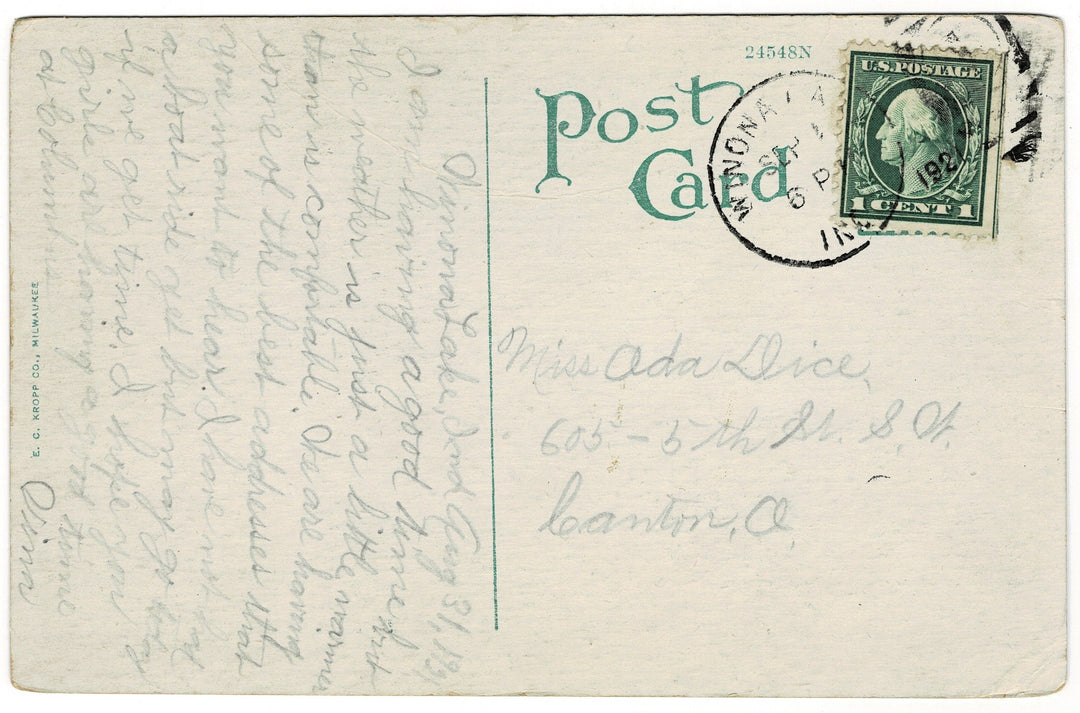 24548N
Post
Card
U.S. POSTAGE
1 CENT 1
WINONA LA
SEP 1
6 P
192
IND
Miss Ada Dice,
605 - 5th St. S. W.
Canton, O.
Winona Lake, Ind Aug 31,
I am having a good time but
the weather is just a little warmer
than is comfortable. We are having
some of the best addresses that
you want to hear. I have not had
a boat ride yet but may go today
if we get time. I hope you
girls are having a good time
at Columbia
E. C. KROPP CO., MILWAUKEE